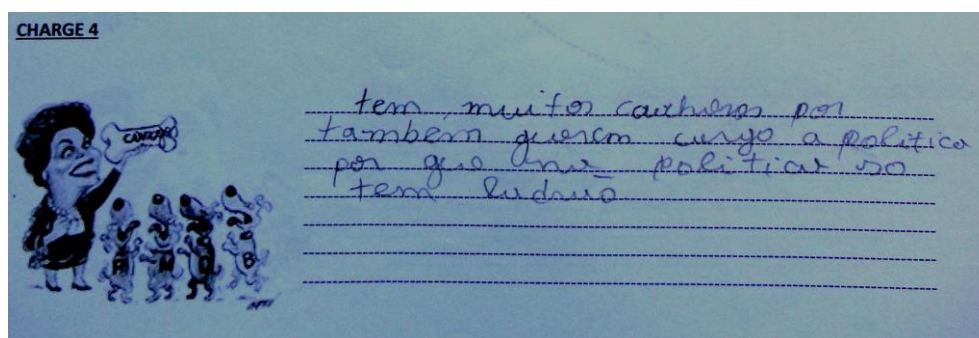 CHARGE 4
cargo
tem muitos cachoros por
tambem querem cargo a politica
por que na politica so
tem ladrão
P M D B